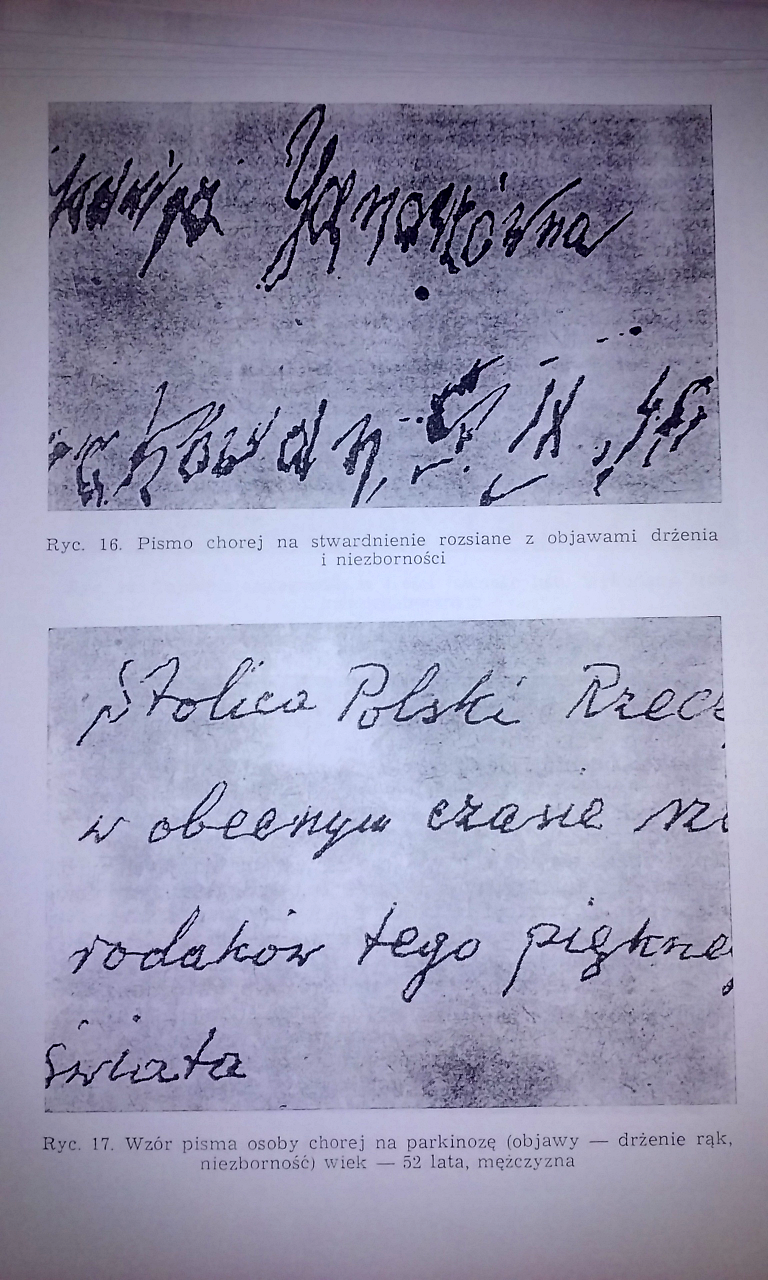 Janoszówna
IX
Ryc. 16. Pismo chorej na stwardnienie rozsiane z objawami drżenia
i niezborności
Stolica Polski Rzecz
w obecnym czasie
rodaków tego piękne
świata
Ryc. 17. Wzór pisma osoby chorej na parkinozę (objawy — drżenie rąk,
niezborność) wiek — 52 lata, mężczyzna